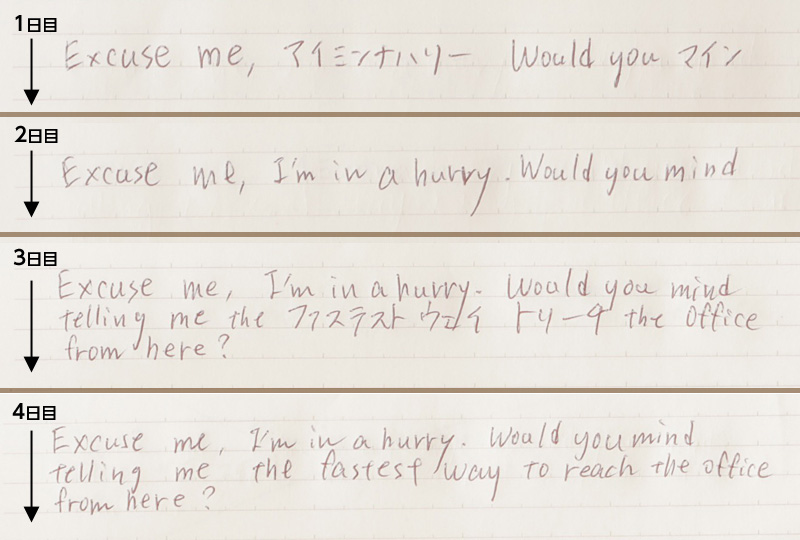 1日目
Excuse me, アイミンナハリー Would you マイン
2日目
Excuse me, I'm in a hurry. Would you mind
3日目
Excuse me, I'm in a hurry. Would you mind
telling me the ファステスト ウェイ トリーチ the office
from here?
4日目
Excuse me, I'm in a hurry. Would you mind
telling me the fastest way to reach the office
from here?